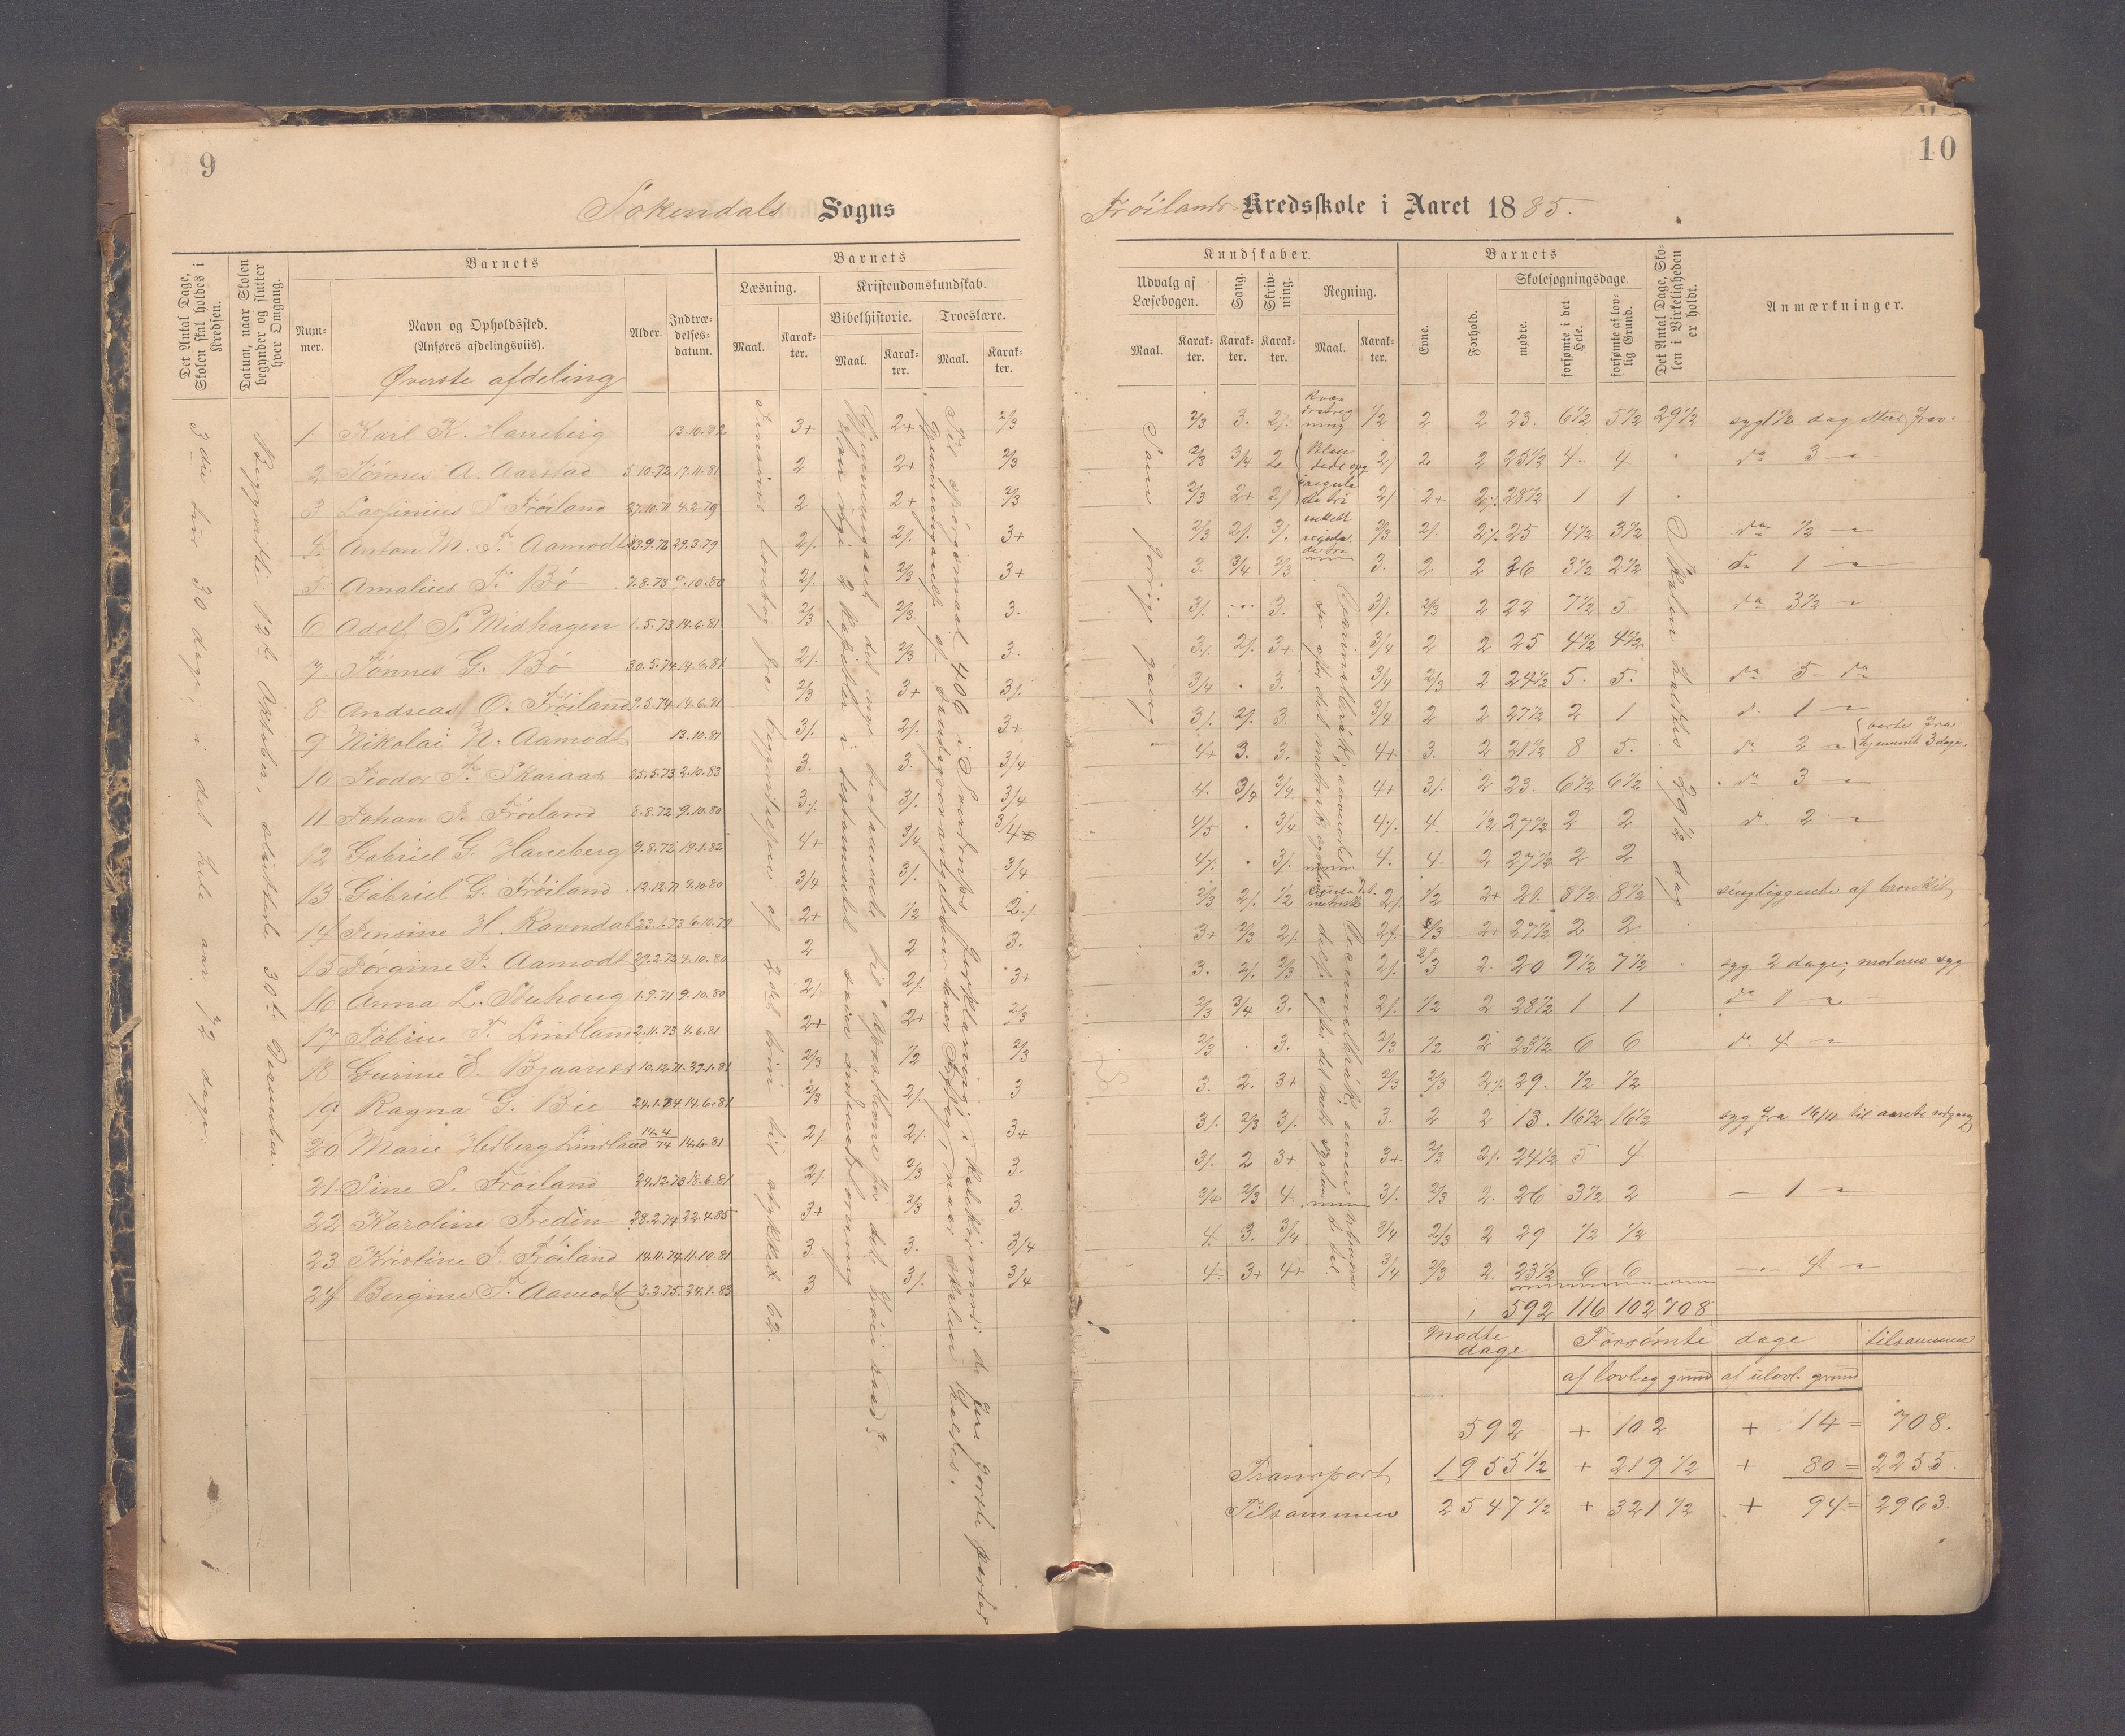 9
Sokendals Sogns
Det Antal Dage, Skolen skal holdes i Kredsen.
Datum, naar Skolen begynder og slutter hver Omgang.
Barnets
Barnets
Num-
mer.
Navn og Opholdssted.
(Anføres afdelingsviis).
Øverste afdeling
Alder.
Indtræ-
delses-
datum.
Læsning.
Kristendomskundskab.
Bibelhistorie.
Troeslære.
Maal.
Karak-
ter.
Maal.
Karak-
ter.
Maal.
Karak-
ter.
3die 30 dage, i det hele aar 72 dage.
Begyndte 12te October, sluttede 30te December.
1 Karl K. Haneberg 13.10.82 3+ 2+ 2/3
2 Tønnes A. Aarstad 5.10.72 17.11.81 2 2+ 2/3
3 Lassinius S. Frøiland 27.10.71 4.2.79 2 2+ 2/3
4 Anton M. T. Aamodt 29.3.79 2/. 2/. 3+
5 Amalius T. Bø 7.8.73 2/. 2/3 3+
6 Adolf S. Midhagen 1.5.73 14.6.81 2/3 2/3 3.
7 Tønnes G. Bø 30.5.74 14.6.81 2/. 2/3 3.
8 Andreas O. Frøiland 9.5.74 14.6.81 2/3 3+ 3/.
9 Nikolai N. Aamodt 13.10.81 3/. 2/. 3+
10 Teodor T. Skaraas 25.5.73 2.10.83 3. 3. 3/4
11 Johan T. Frøiland 8.8.72 9.10.80 3/. 3/. 3/4
12 Gabriel G. Haneberg 9.8.72 19.1.82 4+ 3/4
13 Gabriel G. Frøiland 12.12.71 9.10.80 3/4 3/. 3/4
14 Jensine H. Ravndal 23.6.73 6.10.79 2+ 1/2 2/.
15 Jørgine T. Aamodt 29.2.72 4.10.80 2 2 3.
16 Anna L. Stuhoug 1.9.71 9.10.80 2/. 2/. 3+
17 Tobine T. Lindland 2.11.73 4.6.81 2+ 2+ 2/3
18 Gurine E. Bjaanes 10.12.71 29.1.81 2/3 1/2 2/3
19 Ragna G. Bie 24.1.74 14.6.81 2/3 2/. 3
20 Marie Hedberg Lindland 14.4/74 14.6.81 2/. 2/. 3+
21 Sine S. Frøiland 24.12.73 18.6.81 2/. 2/3 3.
22 Karoline Fredin 28.2.74 22.4.85 3+ 2/3 3.
23 Kristine T. Frøiland 14.11.74 11.10.81 3 3. 3/4
24 Bergine T. Aamodt 3.2.75 24.1.83 3 3/. 3/4
Jensens læsebog fra begyndelsen af 2det trin til stykket 62.
Gjennemgaaet det nye testamente til apostlene for det høie raad.
Til spørgsmaal 406 i Sverdrups forklaring; i katekismen: de fire første parter
10
Frøilands Kredsskole i Aaret 1885.
Kundskaber.
Barnets
Udvalg af
Læsebogen.
Sang.
Skriv-
ning.
Regning.
Evne.
Forhold.
Skolesøgningsdage.
mødte.
forsømte i det Hele.
forsømte af lov-
lig Grund.
Det Antal Dage, Sko-
len i Virkeligheden
er holdt.
Anmærkninger.
Maal.
Karak-
ter.
Karak-
ter.
Karak-
ter.
Maal.
Karak-
ter.
Som forrige gang
Skolen holdtes 29 1/2 dag
2/3 3. 2/. 1/2 2 2 23. 6 1/2 5 1/2 29 1/2
2/3 3/4 2 2/ 2 2 25 1/2 4. 4 da 3
2/3 2+ 2/ 2/ 2+ 2/. 28 1/2 1 1
2/3 2/. 3/. 2/3 2/. 2/. 25 4 1/2 3 1/2 da 1/2
3. 3/4 2/3 3. 2 2 26 3 1/2 2 1/2 da 1
3/. 3. 3/. 2/3 2 22 7 1/2 5 da 3 1/2
3/. 2/. 3+ 3/4 2 2 25 4 1/2 4 1/2
3/4 . 3. 3/4 2/3 2 24 1/2 5. 5. da 5 da
3/. 2/. 3. 3/4 2 2 27 1/2 2 1 d. 1
4+ 3. 3. 4+ 3. 2 21 1/2 8 5. da 2 borte fra hjemmet 3 dage.
4. 3/4 3/4 4+ 3/. 2 23. 6 1/2 6 1/2 da 3
4/5 . 3/4 4/. 4. 1/2 27 1/2 2 2 d. 2
4/. . 3/. 4. 4 2 27 1/2 2 2
2/3 2/. 1/2 2/. 1/2 2+ 21. 8 1/2 8 1/2 sengliggende af bronkit
3+ 2/3 2/. 2/. 2/3 2+ 27 1/2 2 2
3. 2/. 2/3 2/. 2/3 2. 20 9 1/2 7 1/2 syg 2 dage; moderen syg
2/3 3/4 3. 2/. 1/2 2 28 1/2 1 1 da 1
2/3 . 3. 2/3 1/2 2 23 1/2 6 6 da 4
3. 2. 3+ 2/3 2/3 2/. 29. 1/2 1/2
3/. 2/3 3/. 3. 2 2 13. 16 1/2 16 1/2 syg fra 16/11 til aarets udgang
3/. 2 3+ 3+ 2/3 2/. 24 1/2 5 4
3/4 2/3 4. 3/. 2/3 2. 26 3 1/2 2 1
4. 3. 3/4 3/4 2/3 2 29 1/2 1/2
4. 3+ 4+ 3/4 2/3 2. 23 1/2 6 6 4
592 116 102 708
Mødte
dage
Forsømte dage
tilsammen
af lovlig grund
af ulovl. grund
592 + 102 + 14 = 708.
Transport 1955 1/2 + 219 1/2 + 80 = 2255.
Tilsammen 2547 1/2 + 321 1/2 + 94 = 2963.